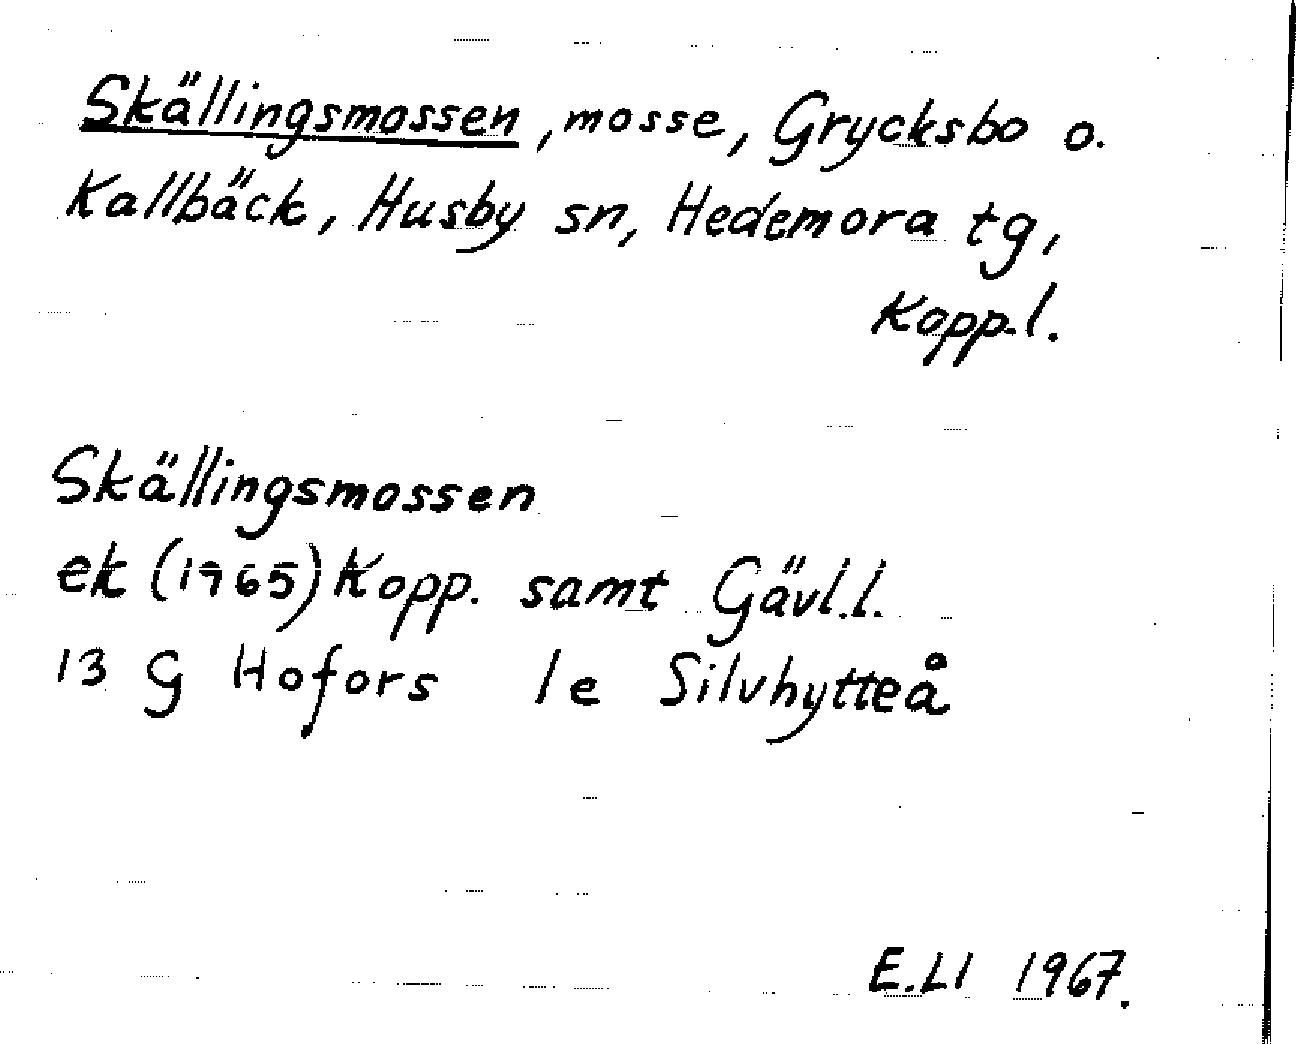 Skällingsmossen, mosse, Grycksbo o.
Kallbäck, Husby sn, Hedemora tg,
Kopp.l.
Skällingsmossen
ek (1965) Kopp. samt Gävl.l.
13 G Hofors 1e Silvhytteå
E.Ll 1967.